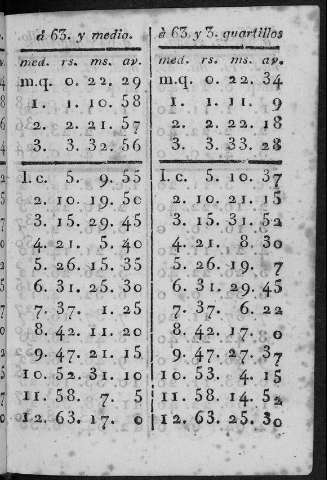 á 63. y medio.
med. rs. ms. av.
m.q. 0. 22. 29
1. 1. 10. 58
2. 2. 21. 57
3. 3. 32. 56
I.c. 5. 9. 55
2. 10. 19. 50
3. 15. 29. 45
4. 21. 5. 40
5. 26. 15. 35
6. 31. 25. 30
7. 37. 1. 25
8. 42. 11. 20
9. 47. 21. 15
10. 52. 31. 10
11. 58. 7. 5
12. 63. 17. 0
à 63. y 3. quartillos
med. rs. ms. av.
m.q. 0. 22. 34
1. 1. 11. 9
2. 2. 22. 18
3. 3. 33. 28
I.c. 5. 10. 37
2. 10. 21. 15
3. 15. 31. 52
4. 21. 8. 30
5. 26. 19. 7
6. 31. 29. 45
7. 37. 6. 22
8. 42. 17. 0
9. 47. 27. 37
10. 53. 4. 15
11. 58. 14. 52
12. 63. 25. 30